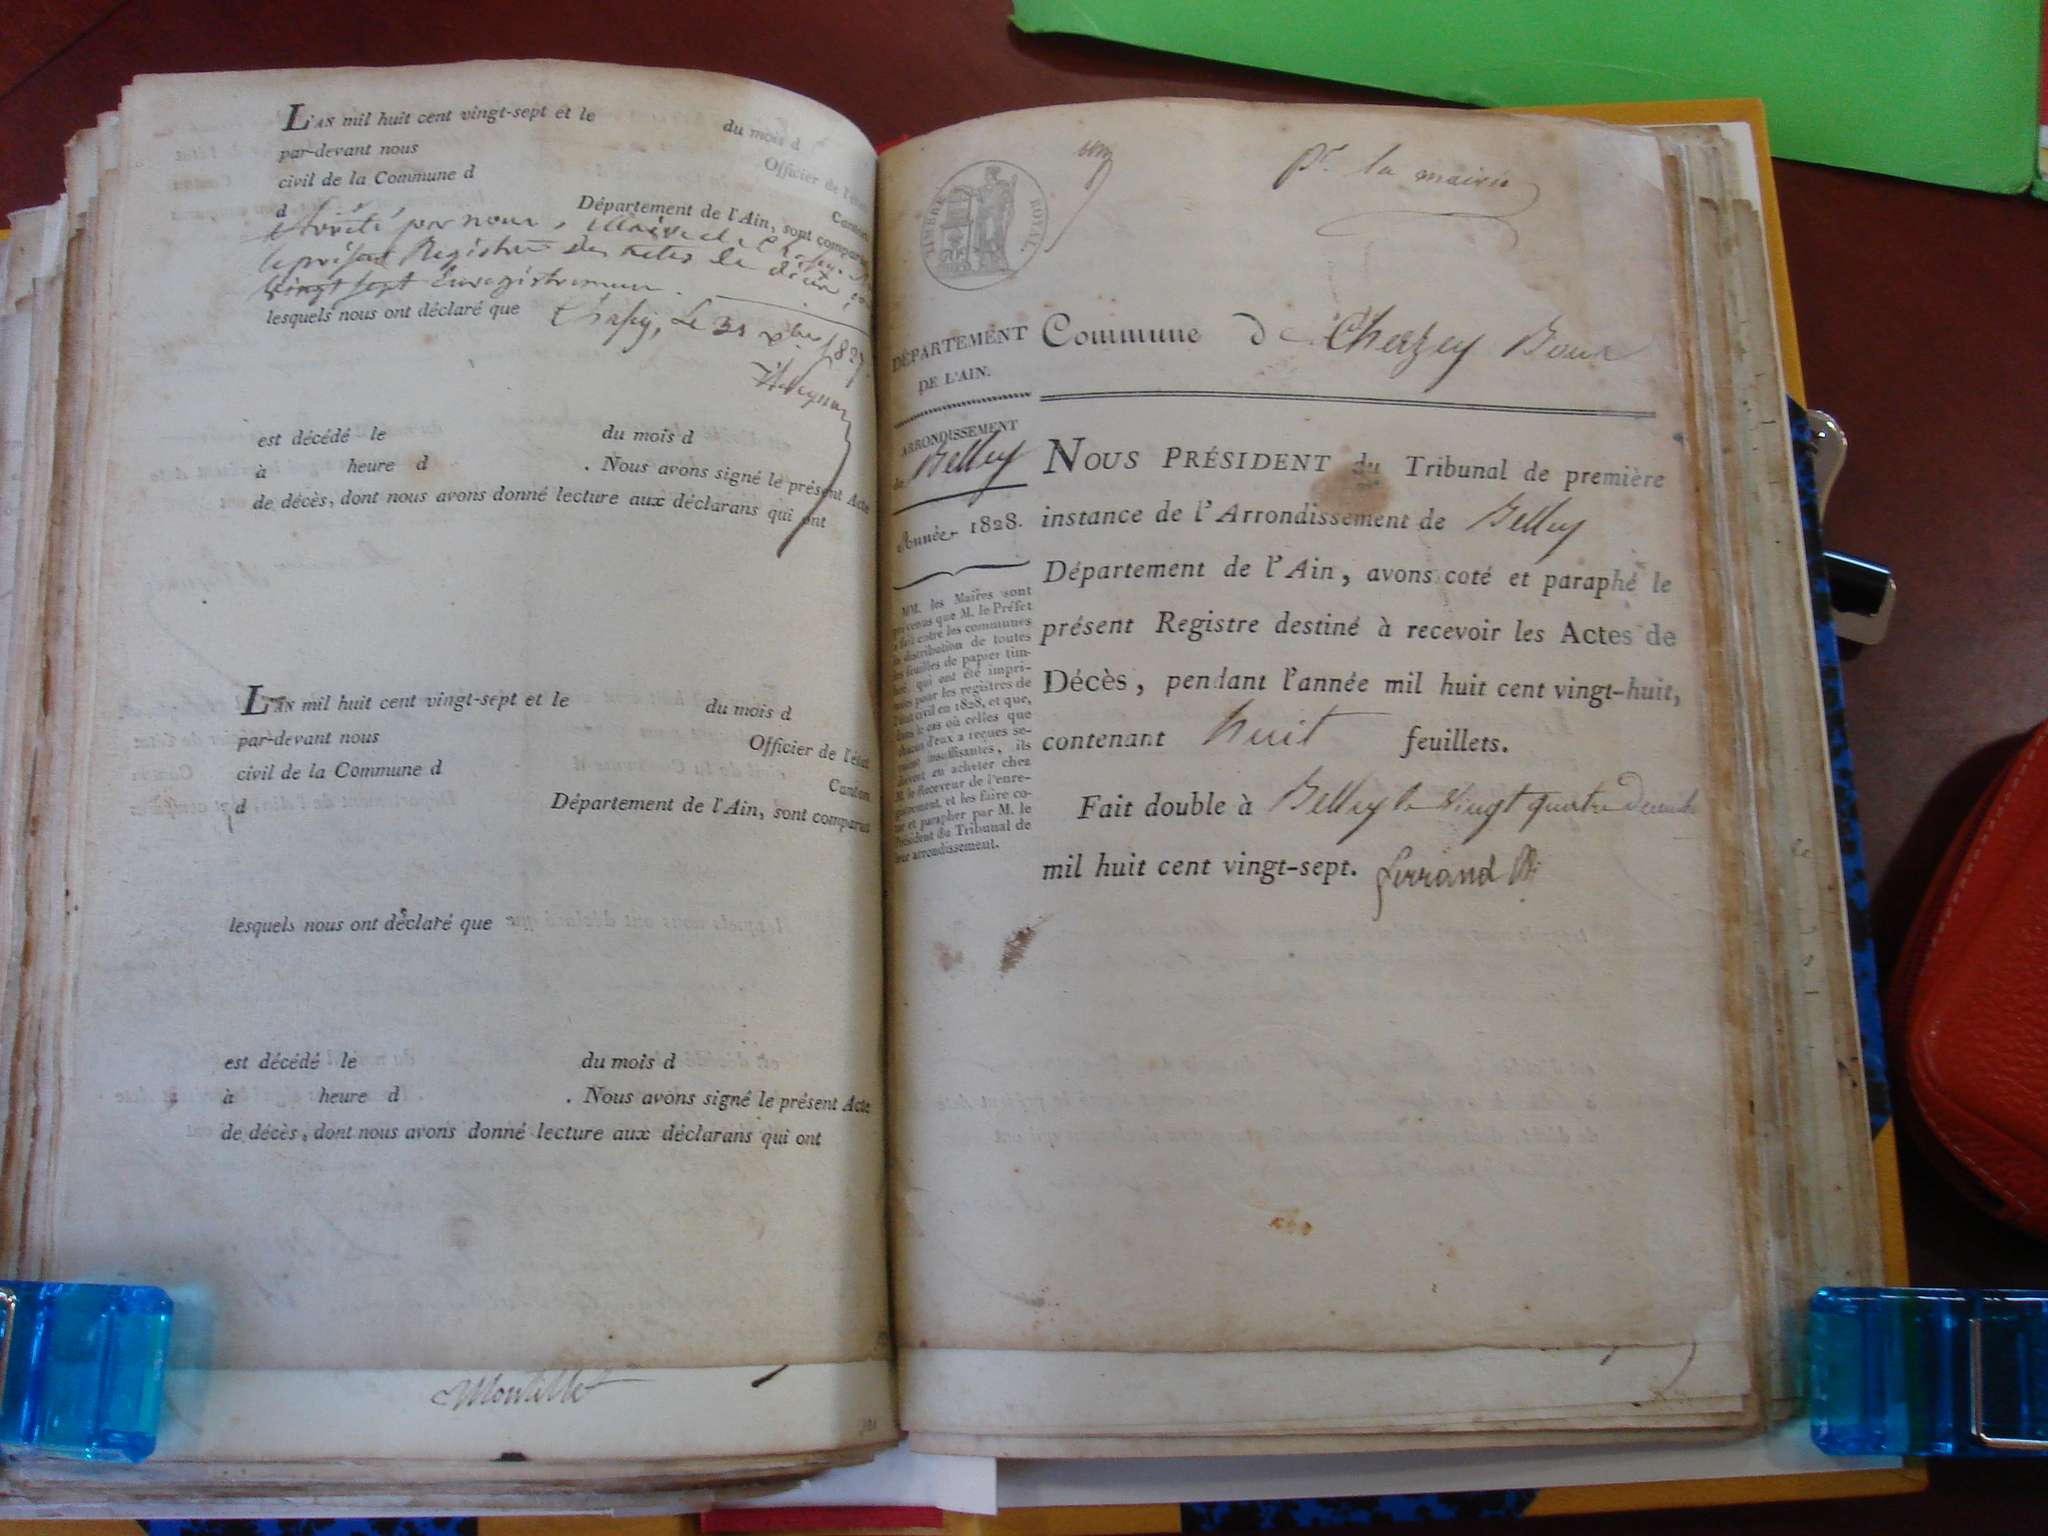 L'AN mil huit cent vingt-sept et le du mois d
par-devant nous Officier de l'état
civil de la Commune d Canton
d Département de l'Ain, sont comparus
arrêté par nous, Maire de
le présent Registre des actes de décès
vingt sept Enregistrements.
lesquels nous ont déclaré que
le 31 Xbre 1827
est décédé le du mois d
à heure d . Nous avons signé le présent Acte
de décès, dont nous avons donné lecture aux déclarans qui ont
L'AN mil huit cent vingt-sept et le du mois d
par-devant nous Officier de l'état
civil de la Commune d Canton
d Département de l'Ain, sont comparus
lesquels nous ont déclaré que
est décédé le du mois d
à heure d . Nous avons signé le présent Acte
de décès, dont nous avons donné lecture aux déclarans qui ont
Montillet
Pr. la mairie
TIMBRE ROYAL.
DÉPARTEMENT
DE L'AIN.
ARRONDISSEMENT
de Belley
Année 1828.
MM. les Maires sont
prévenus que M. le Préfet
a fait entre les communes
la distribution de toutes
les feuilles de papier tim-
bré, qui ont été impri-
mées pour les registres de
l'état civil en 1828, et que,
dans le cas où celles que
chacun d'eux a reçues se-
raient insuffisantes, ils
doivent en acheter chez
M. le Receveur de l'enre-
gistrement, et les faire co-
ter et parapher par M. le
Président du Tribunal de
leur arrondissement.
Commune de Cheyzey Boux
NOUS PRÉSIDENT du Tribunal de première
instance de l'Arrondissement de Belley
Département de l'Ain, avons coté et paraphé le
présent Registre destiné à recevoir les Actes de
Décès, pendant l'année mil huit cent vingt-huit,
contenant huit feuillets.
Fait double à Belley le vingt quatre Décembre
mil huit cent vingt-sept. Ferrand